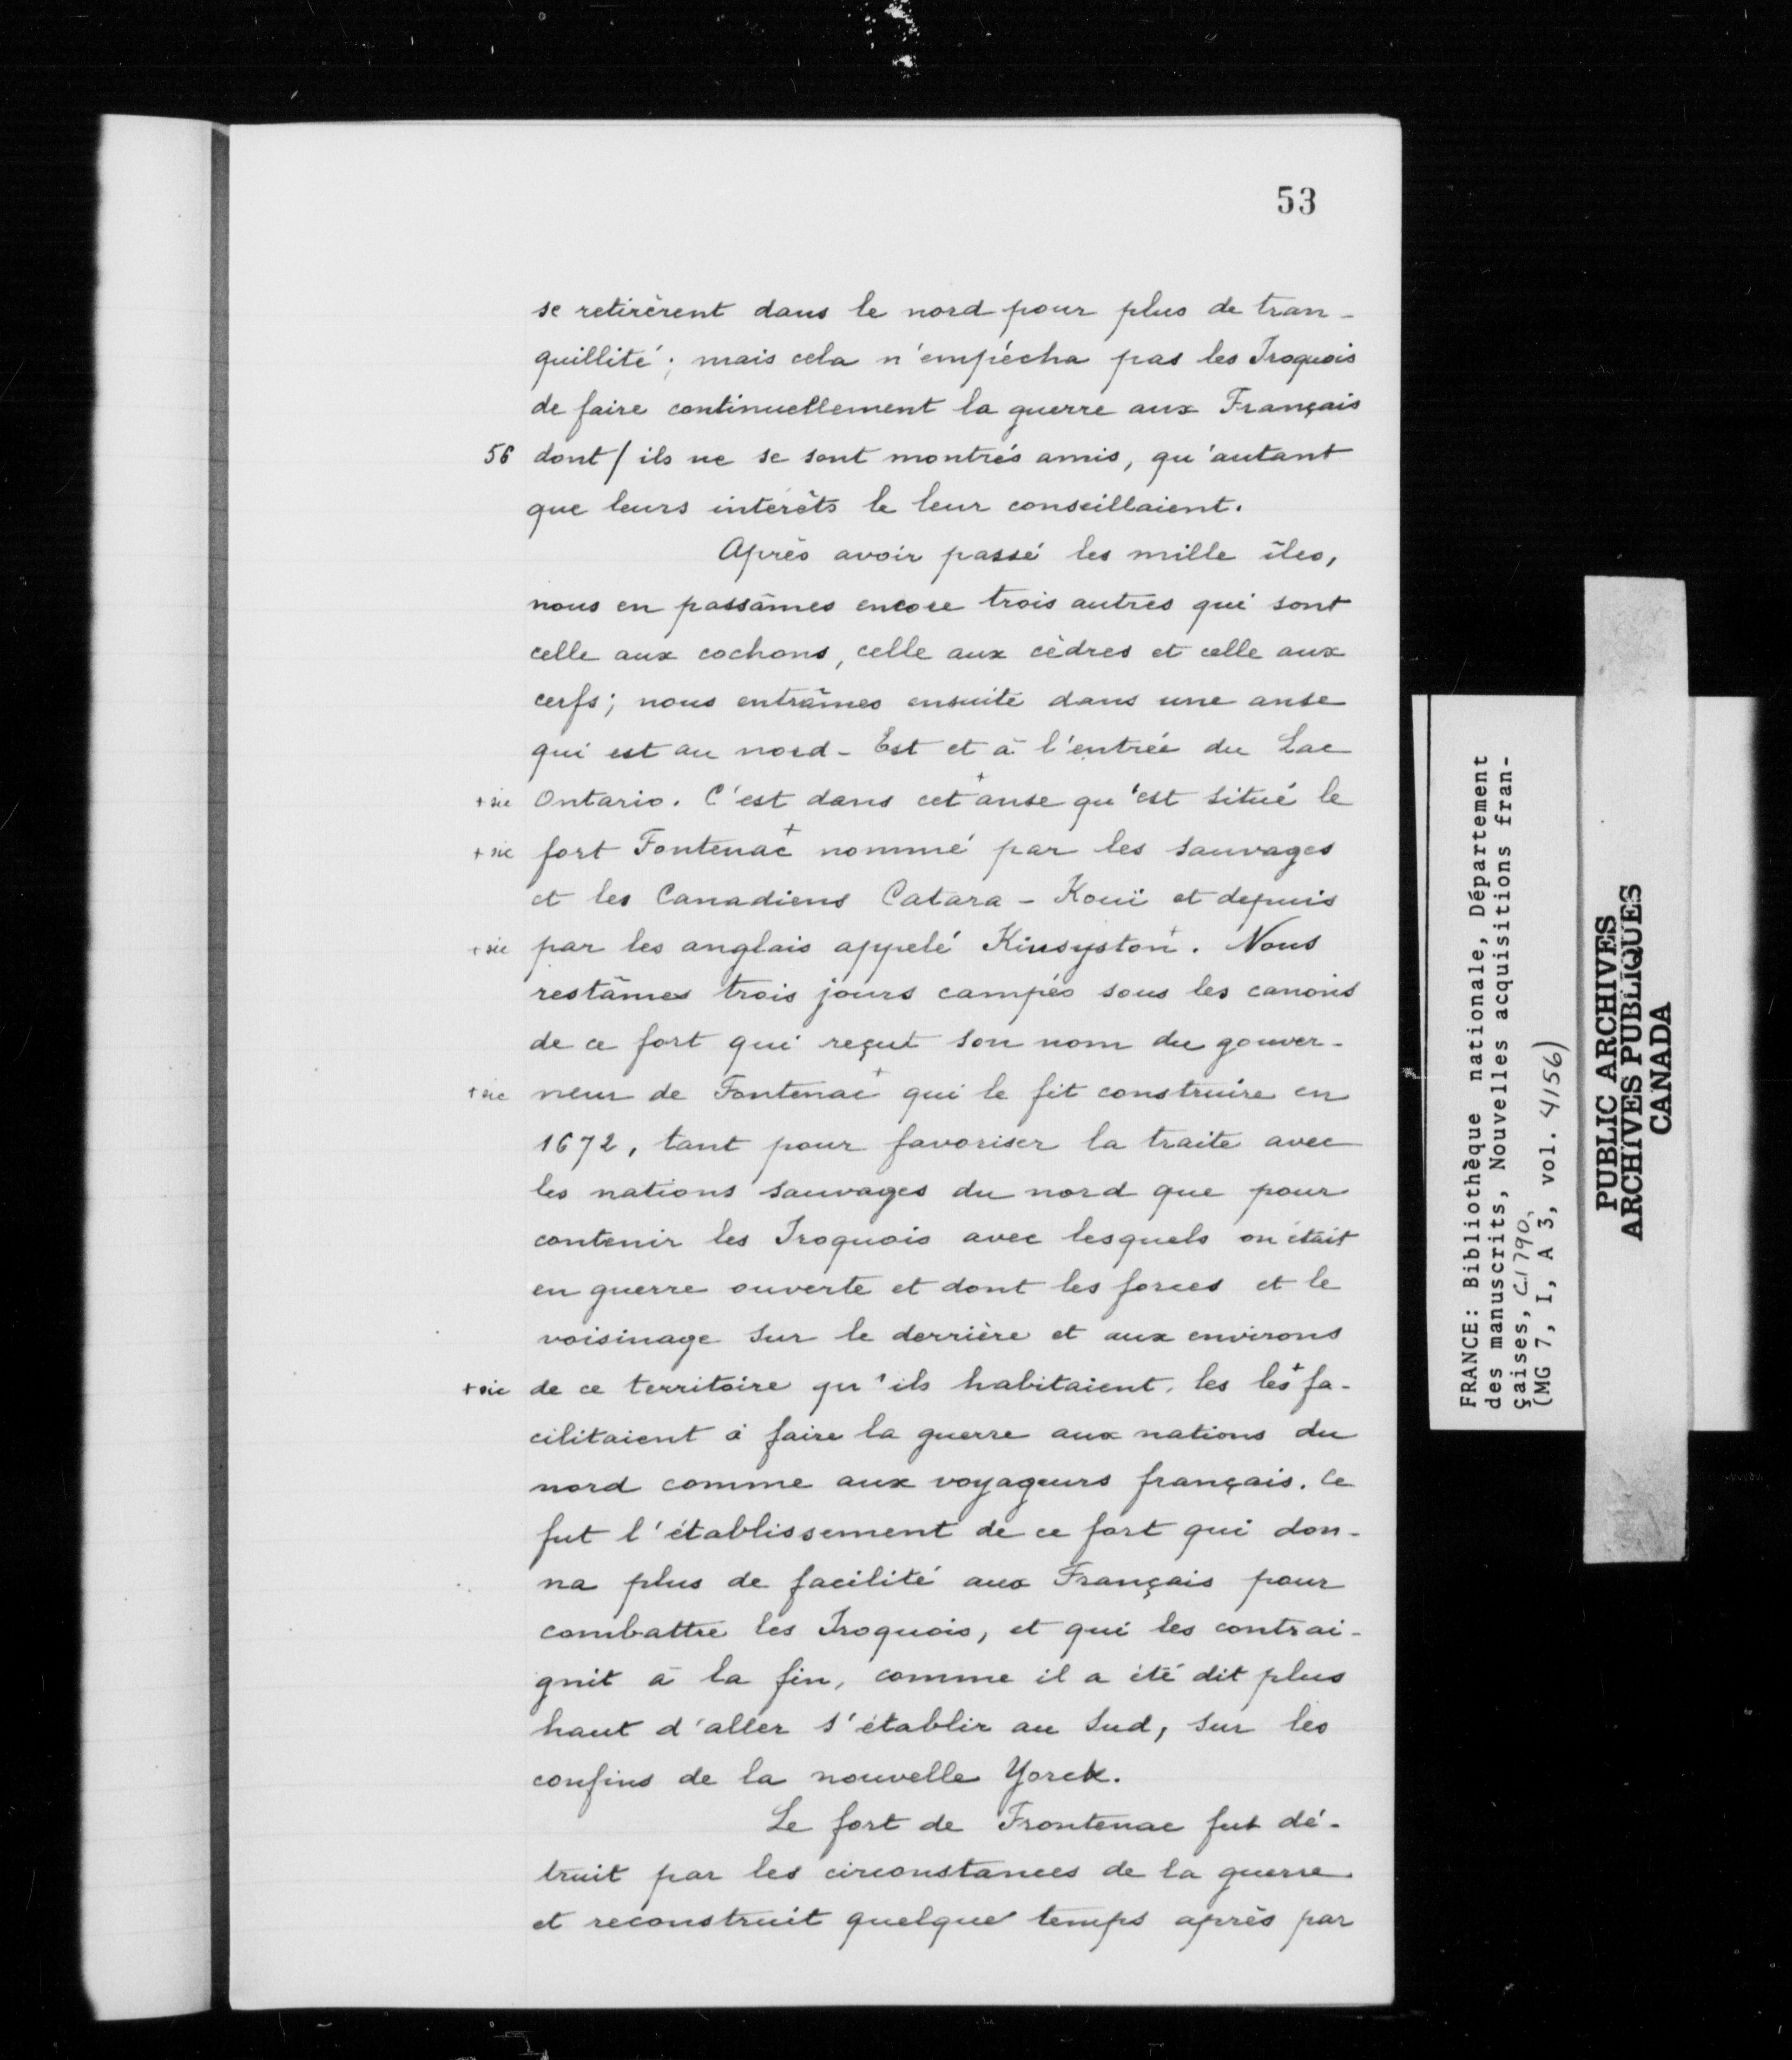 53
se retirèrent dans le nord pour plus de tran-
quillité; mais cela n'empêcha pas les Iroquois
de faire continuellement la guerre aux Français
56 dont / ils ne se sont montrés amis, qu'autant
que leurs intérêts le leur conseillaient.
Après avoir passé les mille îles,
nous en passâmes encore trois autres qui sont
celle aux cochons, celle aux cèdres et celle aux
cerfs; nous entrâmes ensuite dans une anse
qui est au nord-Est et à l'entrée du Lac
+ sic Ontario. C'est dans cet + anse qu'est situé le
+ sic fort Fontenac + nommé par les sauvages
et les Canadiens Catara-Kouï et depuis
+ sic par les anglais appelé Kinsyston +. Nous
restâmes trois jours campés sous les canons
de ce fort qui reçut son nom du gouver-
+ sic neur de Fontenac + qui le fit construire en
1672, tant pour favoriser la traite avec
les nations sauvages du nord que pour
contenir les Iroquois avec lesquels on était
en guerre ouverte et dont les forces et le
voisinage sur le derrière et aux environs
+ sic de ce territoire qu'ils habitaient, les les + fa-
cilitaient à faire la guerre aux nations du
nord comme aux voyageurs français. Ce
fut l'établissement de ce fort qui don-
na plus de facilité aux Français pour
combattre les Iroquois, et qui les contrai-
gnit à la fin, comme il a été dit plus
haut d'aller s'établir au sud, sur les
confins de la nouvelle Yorck.
Le fort de Frontenac fut dé-
truit par les circonstances de la guerre
et reconstruit quelque temps après par
FRANCE: Bibliothèque nationale, Département
des manuscrits, Nouvelles acquisitions fran-
çaises, C.1790,
(MG 7, I, A 3, vol. 4156)
PUBLIC ARCHIVES
ARCHIVES PUBLIQUES
CANADA